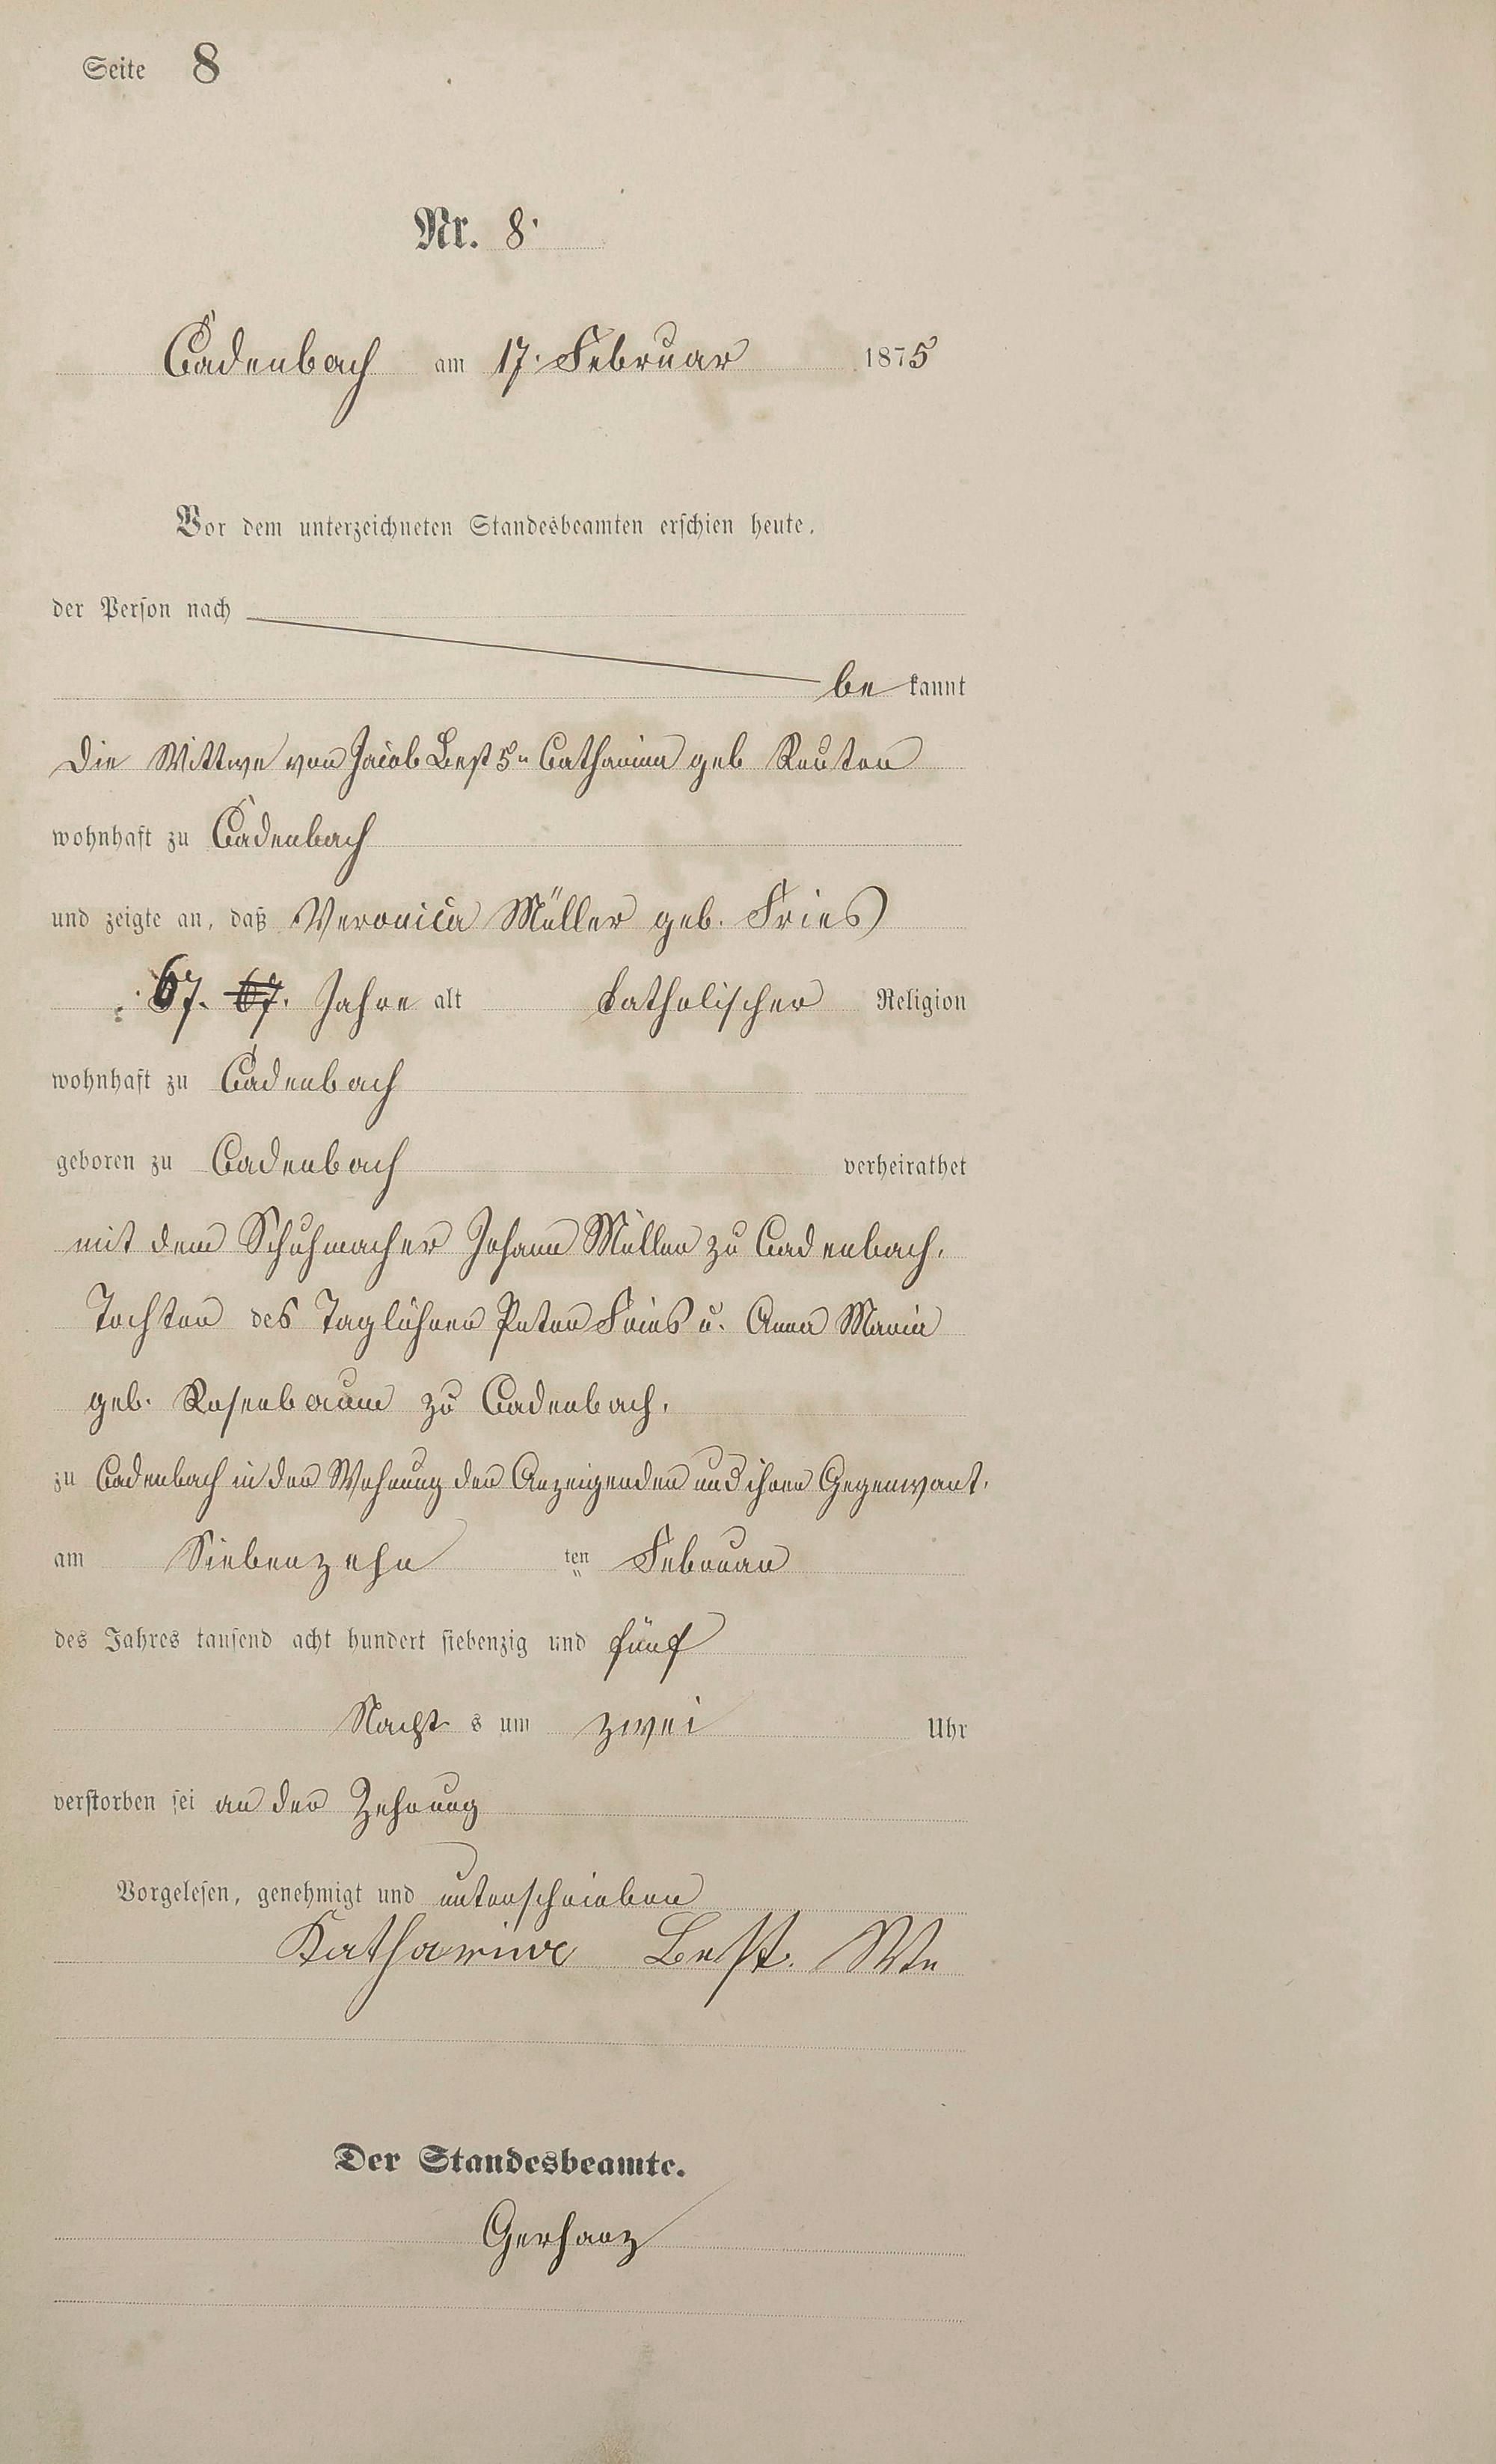 Seite 8
Nr. 8.
Cadenbach am 17. Februar 1875
Vor dem unterzeichneten Standesbeamten erschien heute,
der Person nach
be kannt
die Wittwe von Jacob Best 5r Catharina geb Reuter
wohnhaft zu Cadenbach
und zeigte an, daß Veronica Müller geb. Fries
67. 67. Jahre alt katholischer Religion
wohnhaft zu Cadenbach
geboren zu Cadenbach verheirathet
mit dem Schuhmacher Johann Müller zu Cadenbach,
Tochter des Taglöhner Peter Fries u. Anna Maria
geb. Rosenbaum zu Cadenbach,
zu Cadenbach in der Wohnung der Anzeigenden und ihrer Gegenwart,
am Siebenzehn ten Februar
des Jahres tausend acht hundert siebenzig und fünf
Nacht s um zwei Uhr
verstorben sei an der Zehrung
Vorgelesen, genehmigt und unterschrieben
Katharina Best. We
Der Standesbeamte.
Gerharz